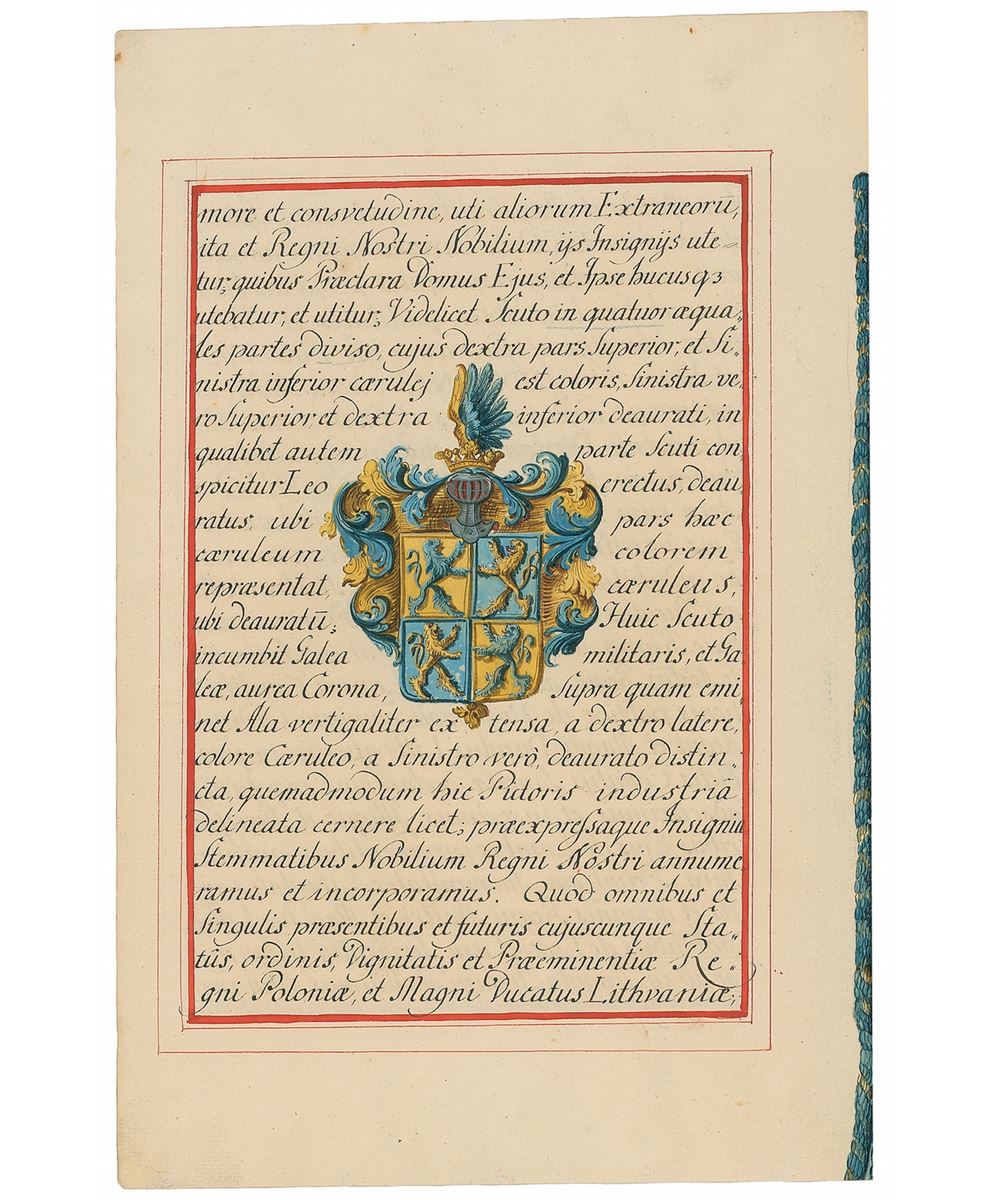 more et consvetudine, uti aliorum Extraneorū,
ita et Regni Nostri Nobilium, ijs Insignijs ute=
tur, quibus Præclara Domus Ejus, et Ipse hucusqꝫ
utebatur, et utitur, Videlicet Scuto in quatuor æqua„
les partes diviso, cujus dextra pars Superior, et Si„
nistra inferior cærulej est coloris, Sinistra ve„
ro Superior, et dextra inferior deaurati, in
qualibet autem parte Scuti con„
spicitur Leo erectus, deau„
ratus, ubi pars hæc
cæruleum colorem
repræsentat, cæruleus,
ubi deauratū; Huic Scuto
incumbit Galea militaris, et Ga„
leæ, aurea Corona, Supra quam emi„
net Ala vertigaliter extensa, a dextro latere,
colore Cæruleo, a Sinistro verò, deaurato distin„
cta, quemadmodum hic Pictoris industriâ
delineata cernere licet; præexpressaque Insignia
Stemmatibus Nobilium Regni Nostri annume„
ramus et incorporamus. Quòd omnibus et
Singulis præsentibus et futuris cujuscunque Sta„
tûs, ordinis, Dignitatis et Præeminentiæ Re„
gni Poloniæ, et Magni Ducatus Lithvaniæ,